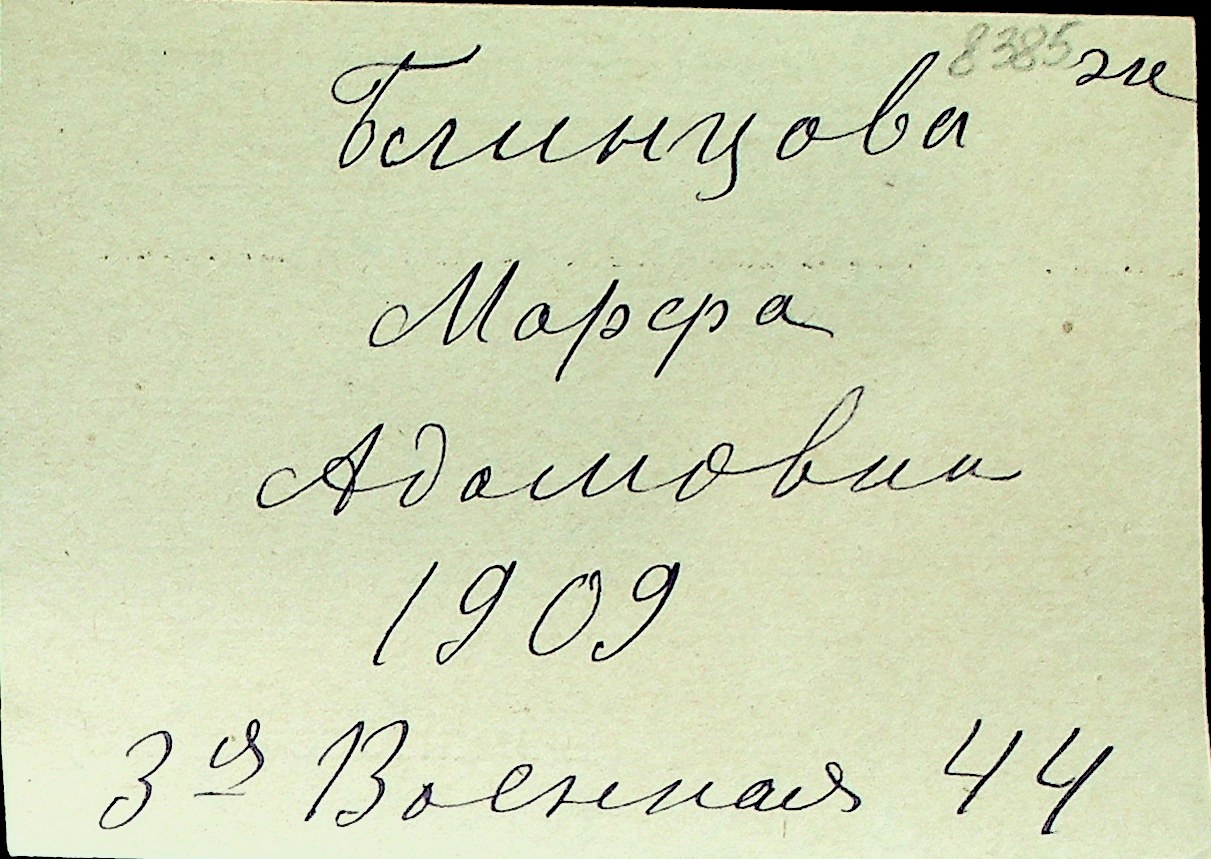 8385 ж
Блинцова
Марфа
Адамовна
1909
3я Военная 44